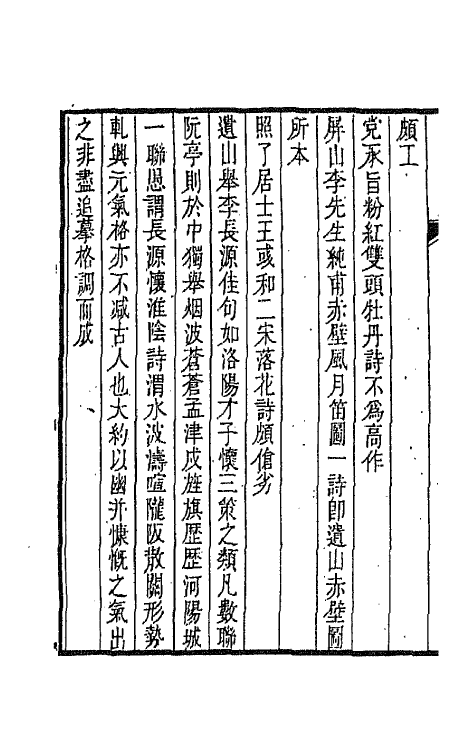 頗工
党承旨粉紅雙頭牡丹詩不爲高作
屏山李先生純甫赤壁風月笛圖一詩卽遺山赤壁圖
所本
照了居士王彧和二宋落花詩頗傖劣
遺山舉李長源佳句如洛陽才子懷三策之類凡數聯
阮亭則於中獨舉烟波蒼蒼孟津戍旌旗歴歴河陽城
一聯愚謂長源懷淮陰詩渭水波濤喧隴阪散關形勢
軋與元氣格亦不减古人也大約以幽并慷慨之氣出
之非盡追摹格調而成